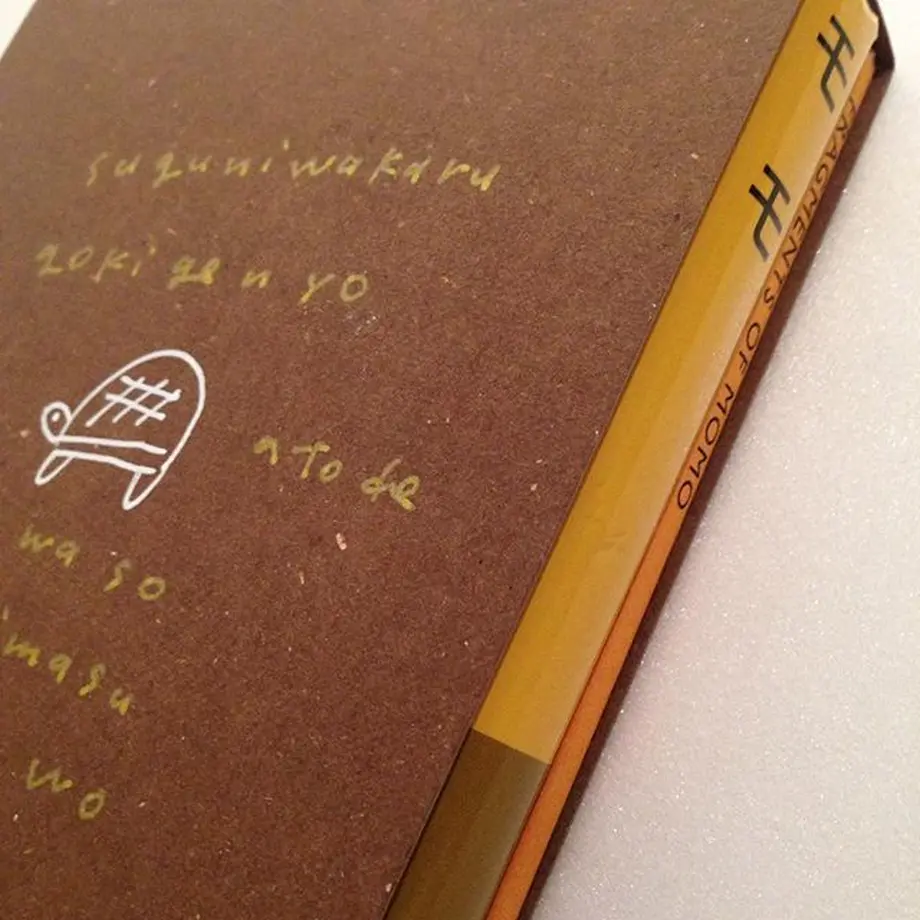 suguniwakaru
gokigen yo
ato de
wa so
imasu
wo
モモ
FRAGMENTS OF MOMO